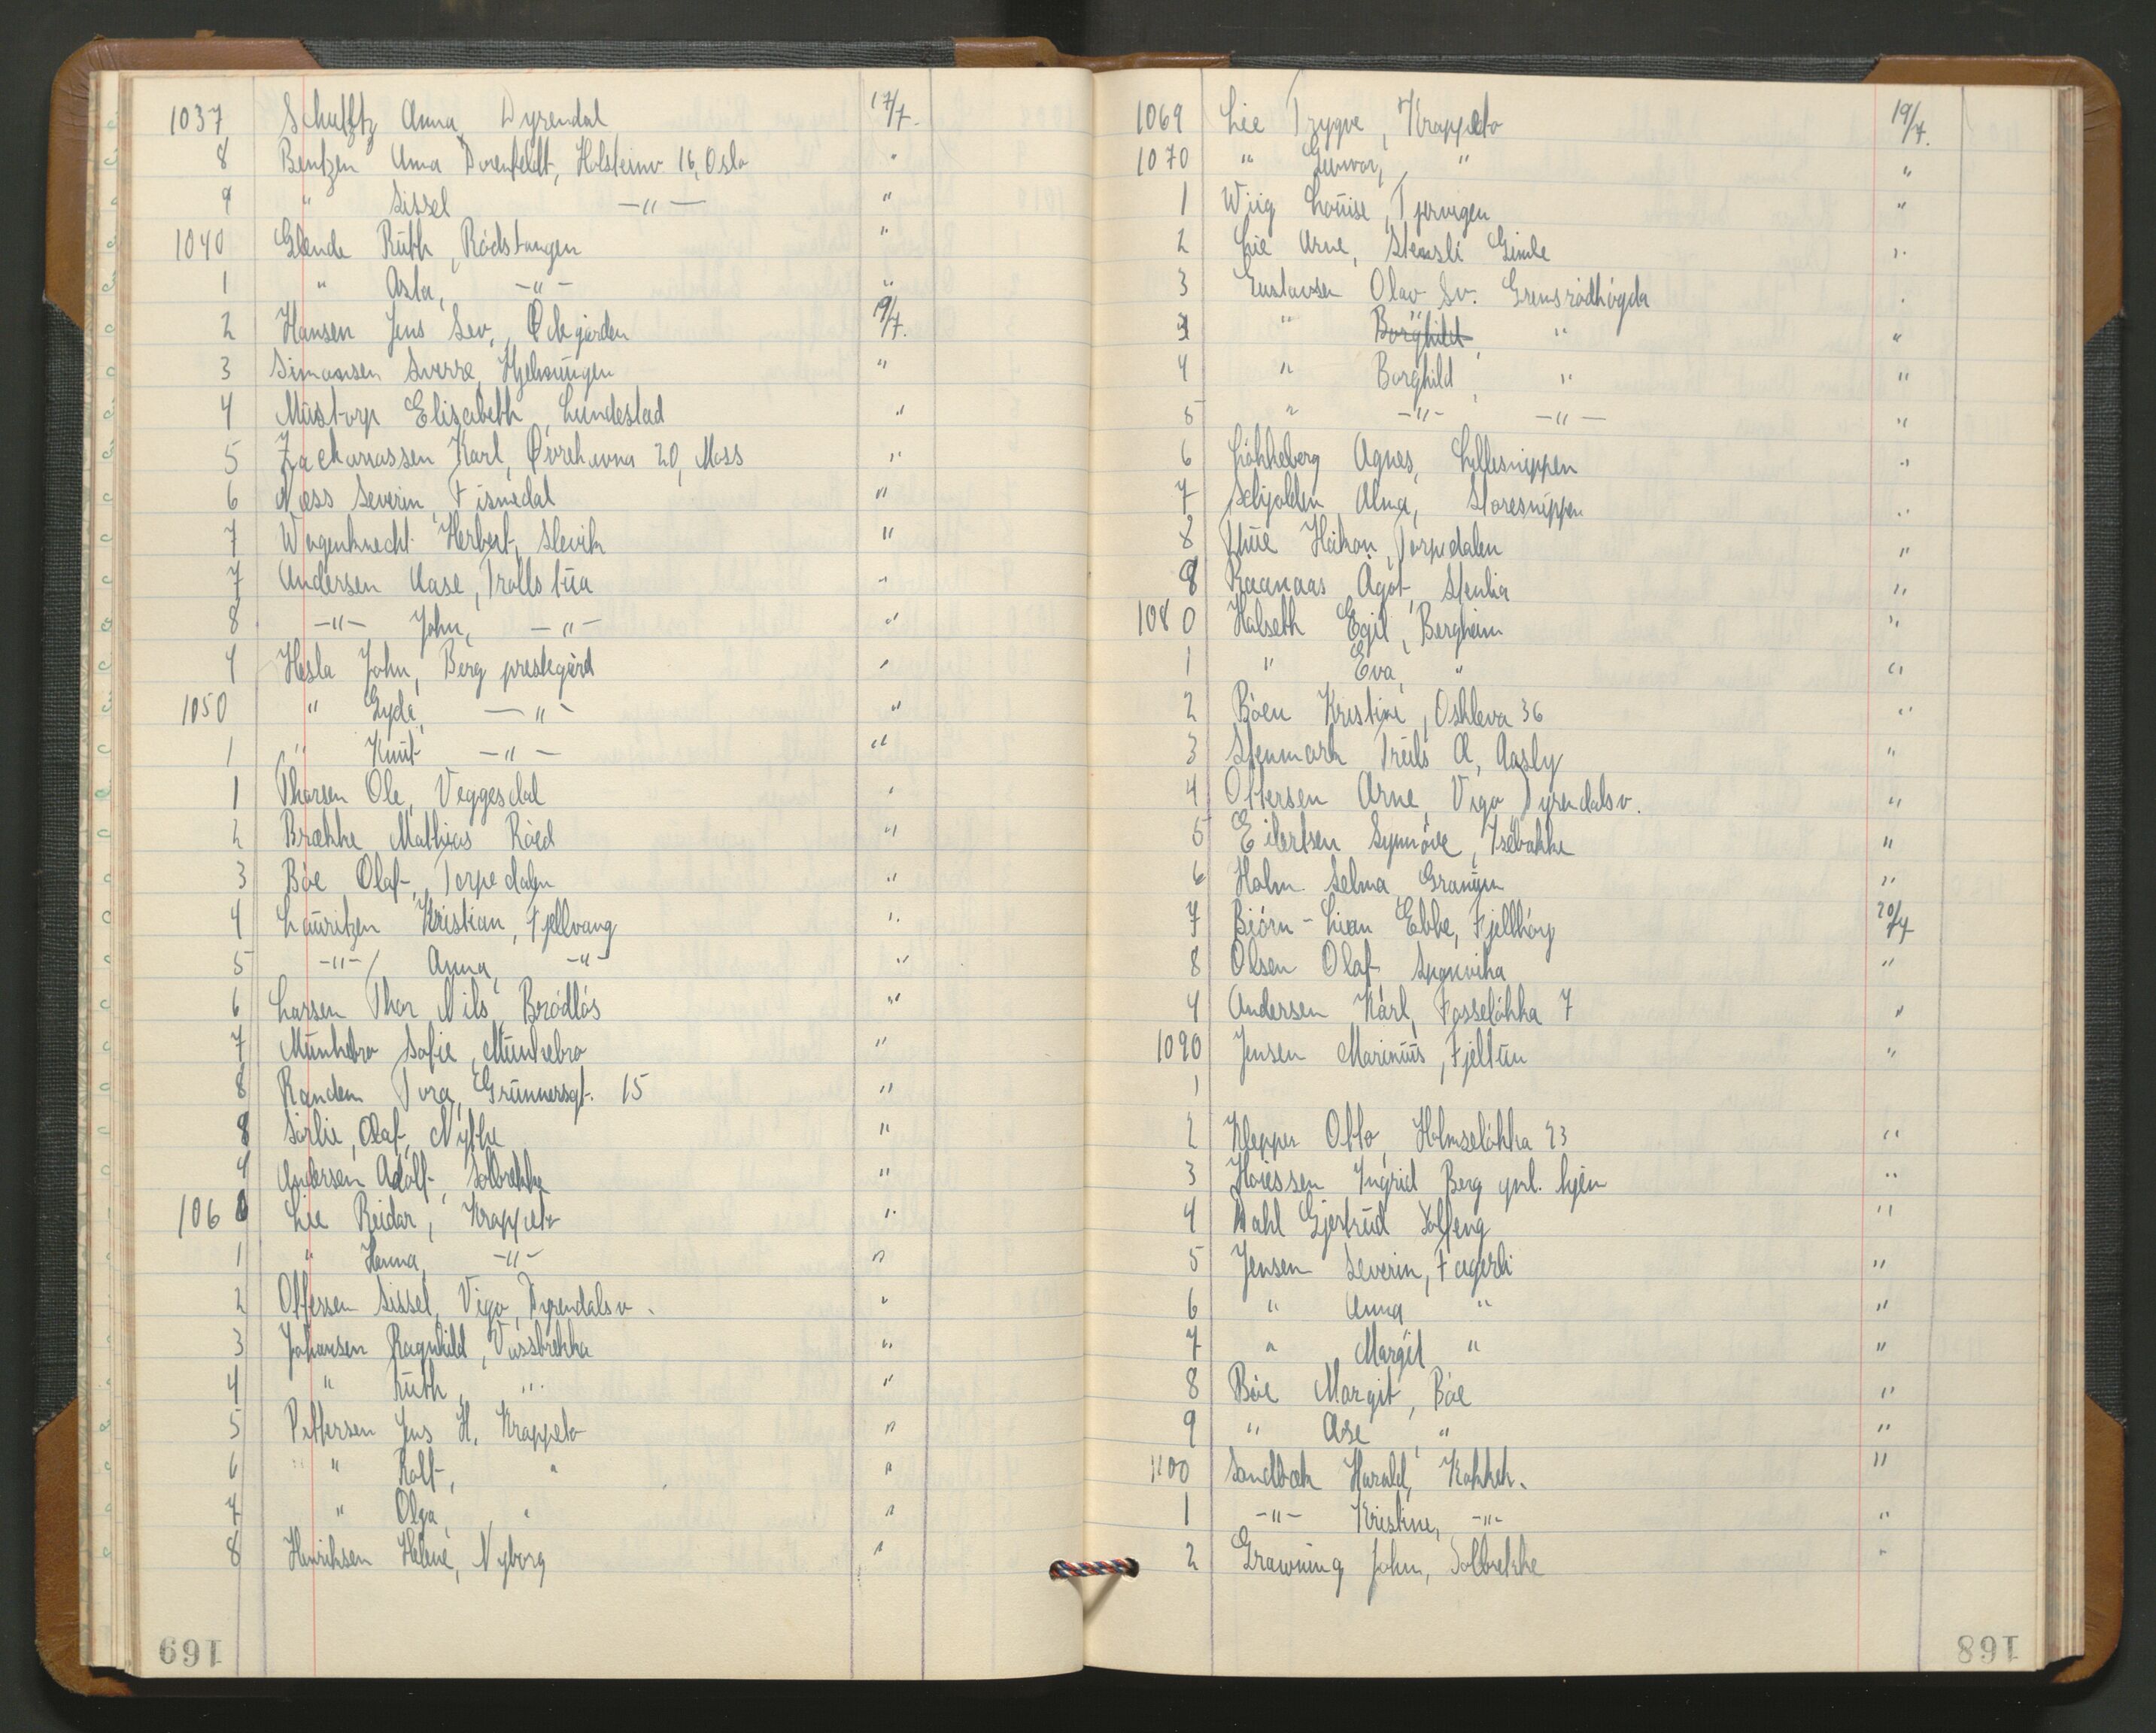 1037 Schultz Anna, Dyrendal 17/7.
8 Bentzen Anna Dorenfeldt, Holsteinv. 16, Oslo "
9 " Sissel —"— "
1040 Glende Ruth, Rødstangen "
1 " Asta, -"- "
2 Hansen Jens Sev., Ødegården 19/7.
3 Simonsen Sverre, Hjelmungen "
4 Mustorp Elisabeth, Lundestad "
5 Zachariassen Karl, Øvrehavna 20, Moss "
6 Næss Severin, Fismedal "
7 Wagenknecht Herbert, Slevik "
7 Andersen Aase, Trollstua "
8 -"- John, -"- "
9 Hesla John, Berg prestegård "
1050 " Gyda, —"- "
1 " Knut -"- "
1 Thorsen Ole, Veggesdal "
2 Brække Mathias Røed "
3 Bøe Olaf, Torpedalen "
4 Lauritzen Kristian, Fjellvang "
5 -"- Anna, -"- "
6 Larsen Thor Nils, Brødløs "
7 Munkebro Sofie, Munkebro "
8 Randem Tora, Grünnersgt. 15 "
8 Sørlie, Olaf, "
9 Andersen Adolf, Solbrekke "
1060 Lie Reidar, Krappeto "
1 " Hanna, -"- "
2 Ottersen Sissel, Vigo, Dyrendalsv. "
3 Johansen Ragnhild, Vassbrekka "
4 " Ruth, " "
5 Pettersen Jens H. Krappeto "
6 " Rolf, " "
7 " Olga, " "
8 Henriksen Helene, Nyborg "
169
1069 Lie Trygve, Krappeto 19/7.
1070 " Gunvor, " "
1 Wiig Louise, Tjervigen "
2 Lie Arne, Stensli Gimle "
3 Gustavsen Olav Sv. Gremsrødhøgda "
3 " Borghild, " "
4 " Borghild " "
5 " -"- —"— "
6 Løkkeberg Agnes, Lillesnippen "
7 Skjolden Alma, Storesnippen "
8 Thue Håkon, Torpedalen "
9 Raanaas Ågot, Stenlia "
1080 Halseth Egil, Bergheim "
1 " Eva, " "
2 Bøen Kristine, Oskleva 36 "
3 Stenmark Truls A, Aasly "
4 Ottersen Arne, Vigo, Dyrendalsv. "
5 Eilertsen Synnøve, Isebakke "
6 Holm Selma "
7 Bjørn-Lian Ebbe, Fjellhøy 20/7
8 Olsen Olaf, Sponvika "
9 Andersen Karl, Fosseløkka 7 "
1090 Jensen Marinius, Fjeltun "
1
2 Klepper Otto, Holmseløkka 23 "
3 Høiessen Ingrid Berg gml. hjem "
4 Dahl Gjertrud Solfeng "
5 Jensen Severin, Fagerli "
6 " Anna " "
7 " Margit " "
8 Bøe Margit, Bøe "
9 " Åse, " "
1100 Sandbæk Harald, Kokkeh. "
1 -"- Kristine, -"- "
2 Grawning John, Solbrekke "
168